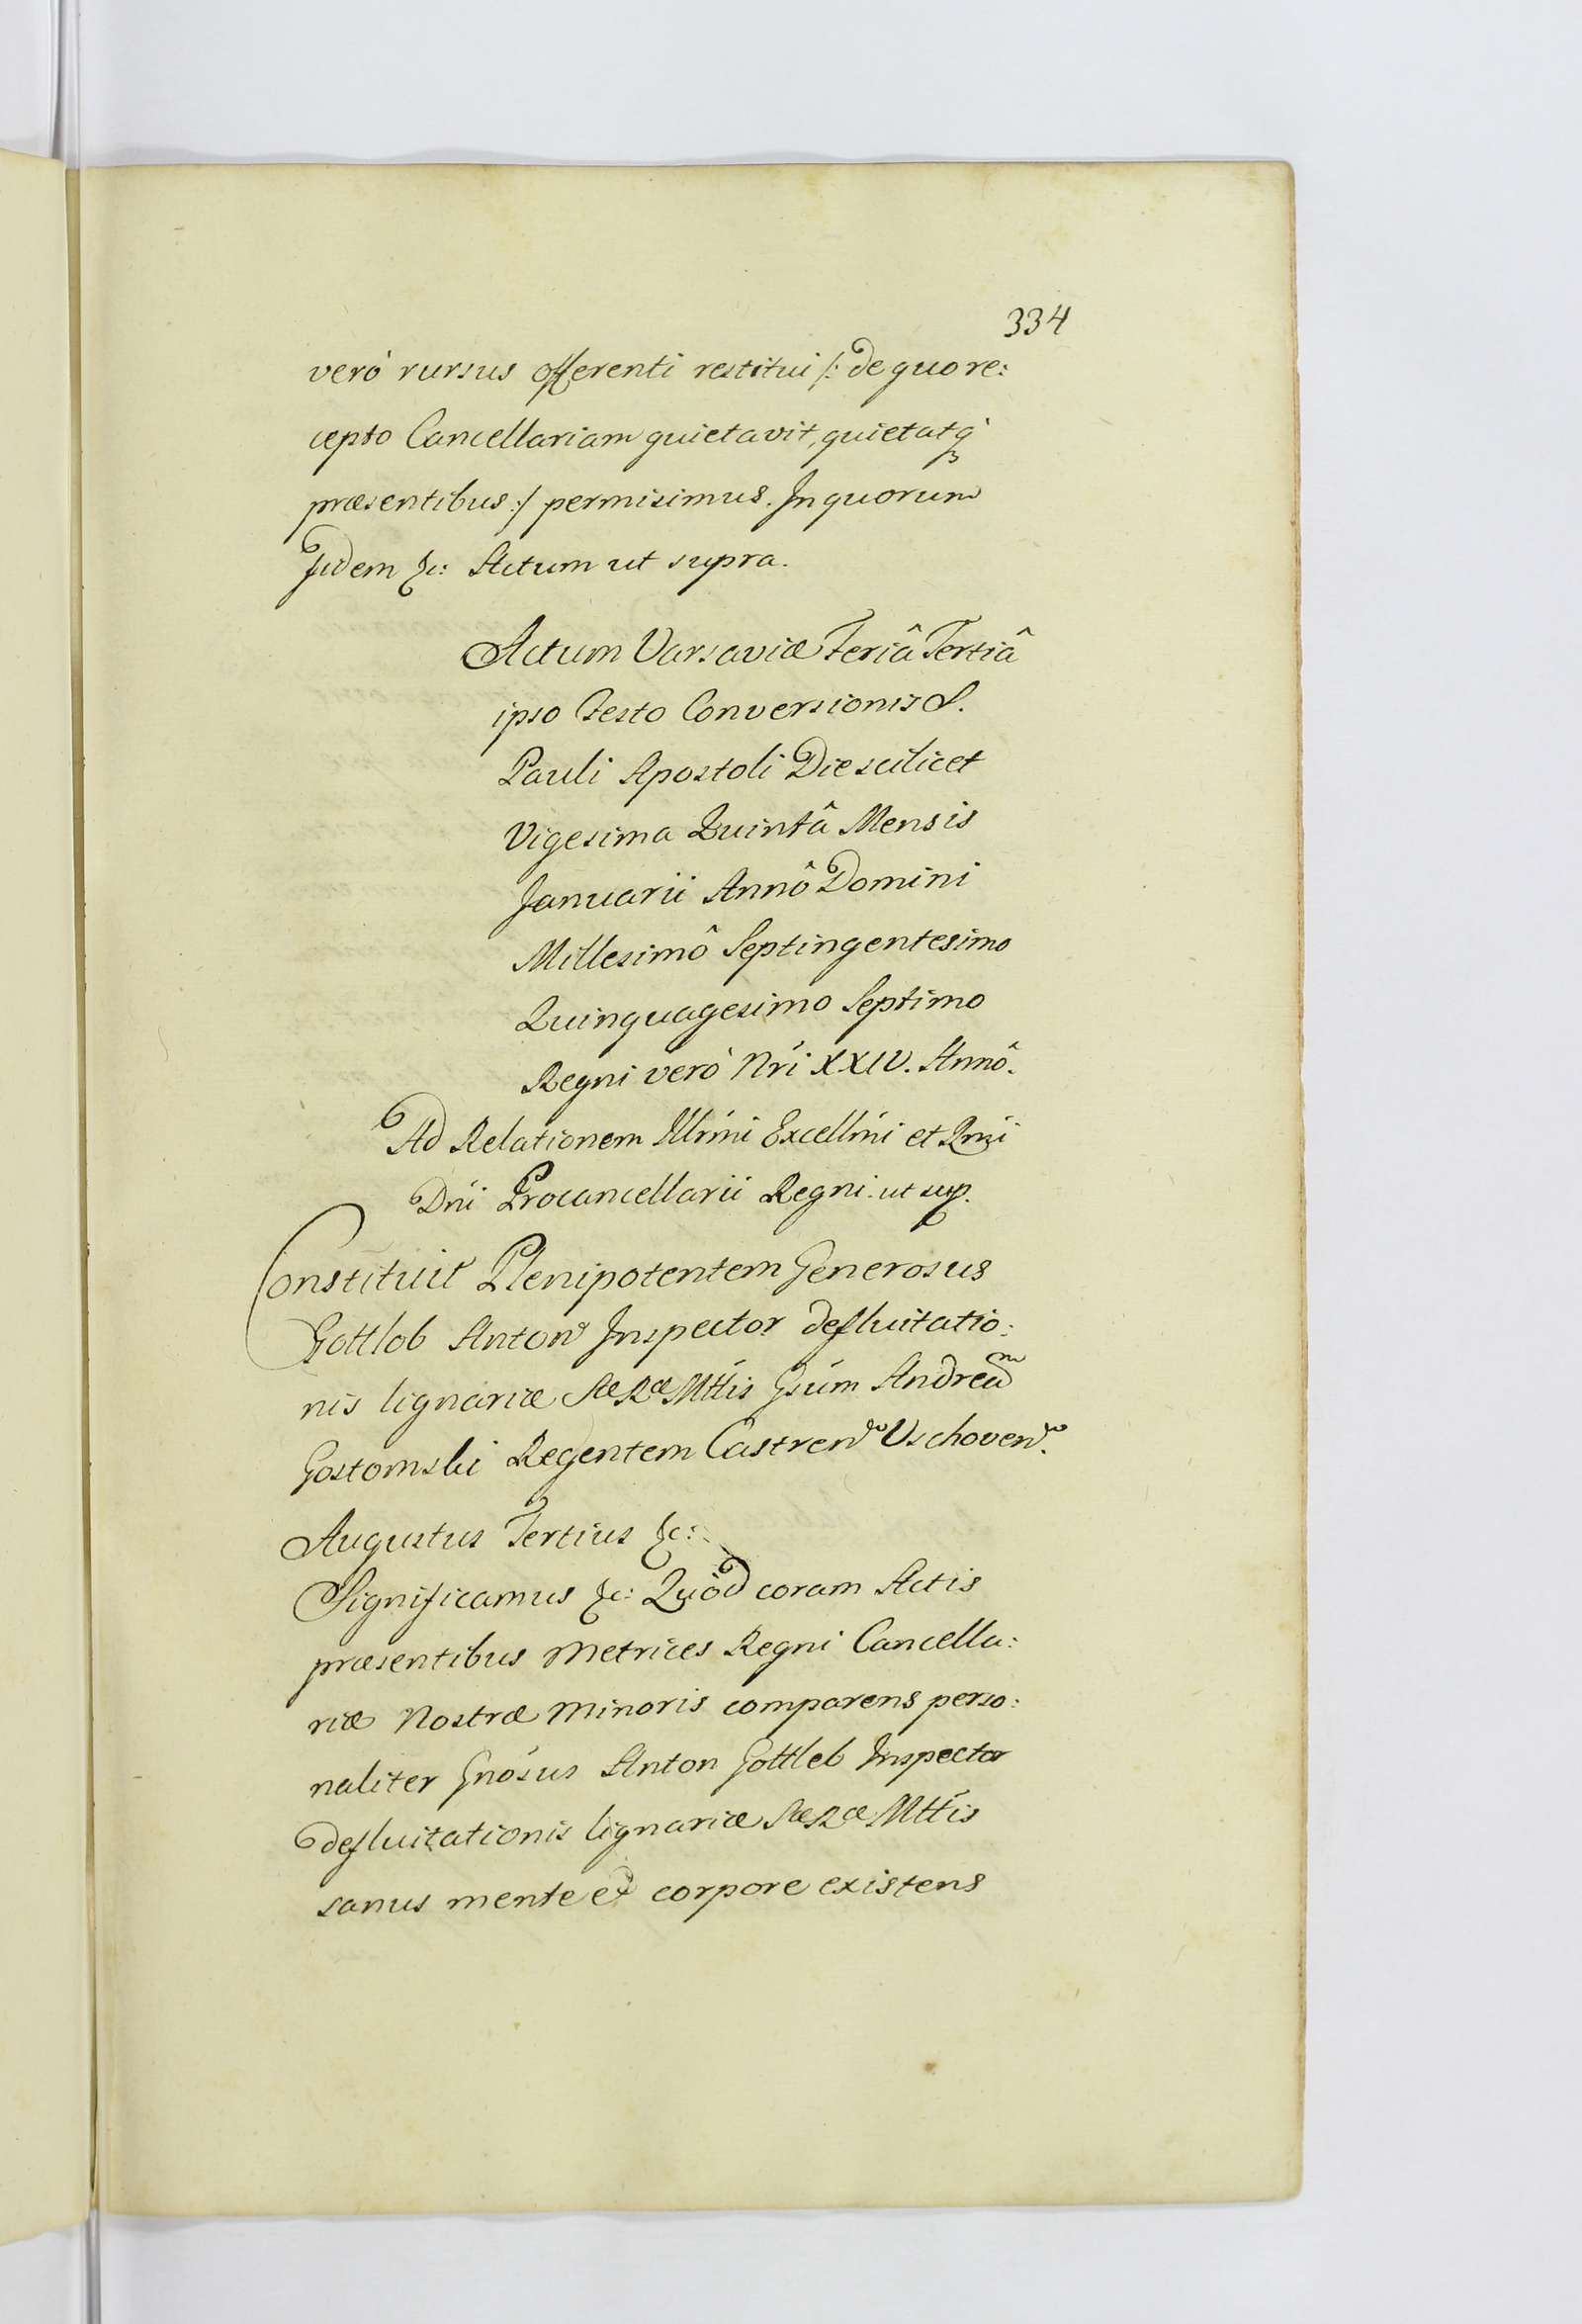 334
verò rursus offerenti restitui /: de quo re:
cepto Cancellariam quietavit, quietatq;
præsentibus :/ permisimus. In quorum
Fidem &c: Actum ut supra.
Actum Varsaviæ Feriâ Tertiâ
ipso Festo Conversionis S.
Pauli Apostoli Die scilicet
Vigesima Quintâ Mensis
Januarii Annô Domini
Millesimô Septingentesimo
Quinquagesimo Septimo
Regni verò Nri XXIV. Annô.
Ad Relationem Illrmi Excellmi et Rmi
Dni Procancellarii Regni ut sup.
Constituit Plenipotentem Generosus
Gottlob Anton Inspector defluitatio:
nis lignariæ SæRæMttis Gsum Andream
Gostomski Regentem Castren Vschoven.
Augustus Tertius &c:
Significamus &c: Quòd coram Actis
præsentibus Metrices Regni Cancella:
riæ Nostræ Minoris comparens perso:
naliter Gnosus Anton Gottleb Inspector
defluitationis lignariæ SæRæ Mttis
sanus mente et corpore existens